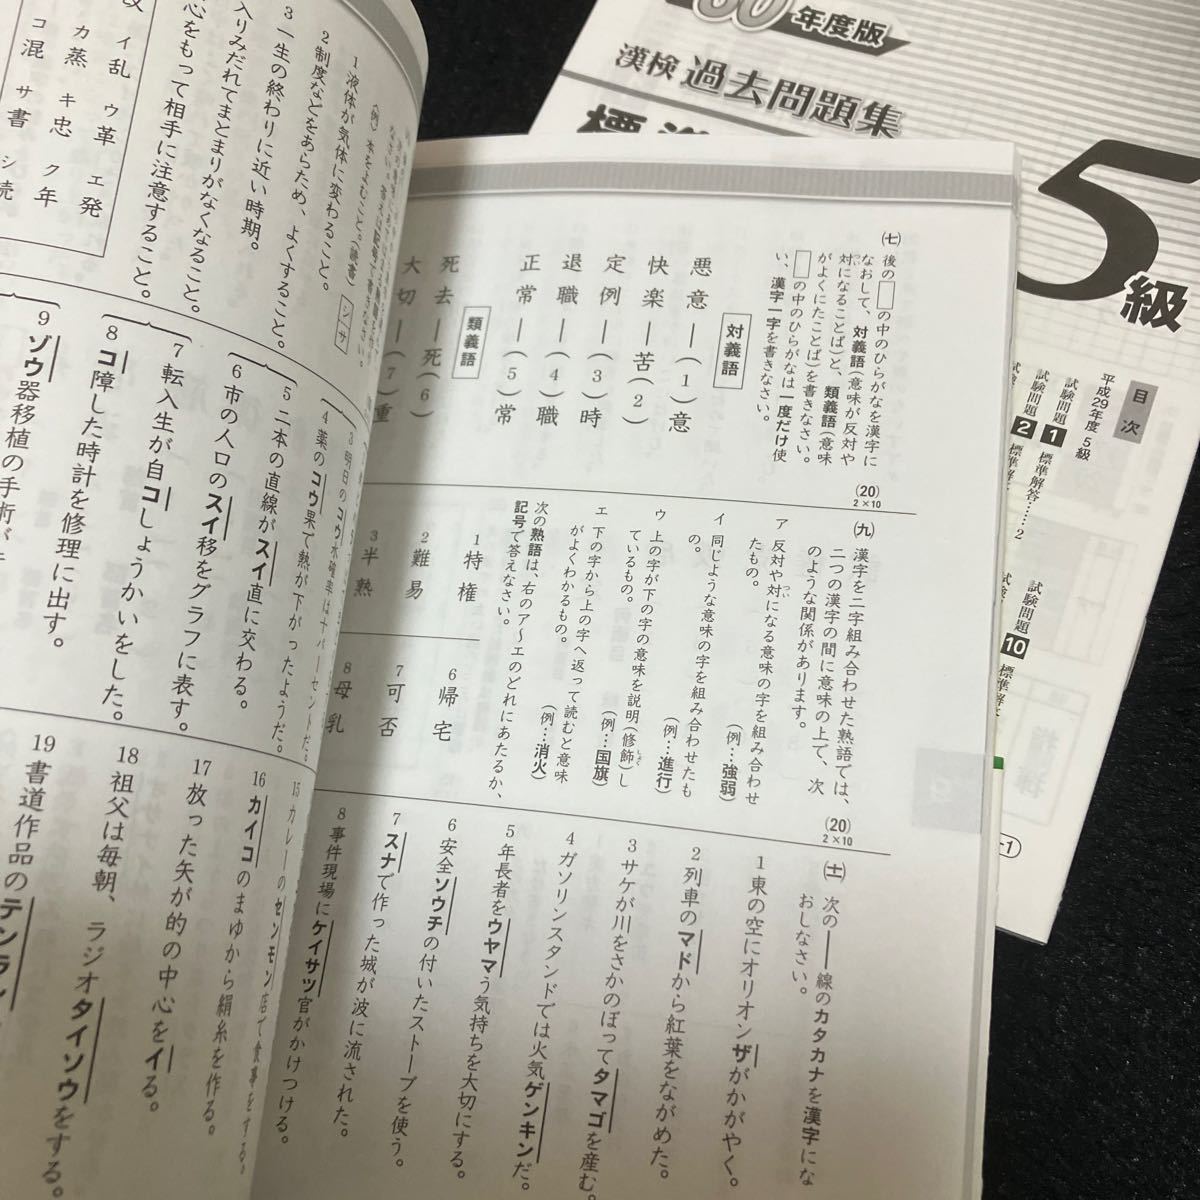 30年度版
漢検 過去問題集
5級
目次
平成29年度 5級
試験問題 1 標準解答……2
試験問題 10 標準解答
(七) 後の□の中のひらがなを漢字に
なおして、対義語(意味が反対や
対になることば)と、類義語(意味
がよくにたことば)を書きなさい。
□の中のひらがなは一度だけ使
い、漢字一字を書きなさい。
(20)
2×10
対義語
悪意―(1)意
快楽―苦(2)
定例―(3)時
退職―(4)職
正常―(5)常
類義語
死去―死(6)
大切―(7)重
(九) 漢字を二字組み合わせた熟語では、
二つの漢字の間に意味の上で、次
のような関係があります。
(20)
2×10
ア 反対や対になる意味の字を組み合わせ
たもの。 (例…強弱)
イ 同じような意味の字を組み合わせたも
の。 (例…進行)
ウ 上の字が下の字の意味を説明(修飾)し
ているもの。 (例…国旗)
エ 下の字から上の字へ返って読むと意味
がよくわかるもの。 (例…消火)
次の熟語は、右のア〜エのどれにあたるか、
記号で答えなさい。
1 特権
2 難易
3 半熟
6 帰宅
7 可否
8 母乳
(十一) 次の――線のカタカナを漢字にな
おしなさい。
1 東の空にオリオンザがかがやく。
2 列車のマドから紅葉をながめた。
3 サケが川をさかのぼってタマゴを産む。
4 ガソリンスタンドでは火気ゲンキンだ。
5 年長者をウヤマう気持ちを大切にする。
6 安全ソウチの付いたストーブを使う。
7 スナで作った城が波に流された。
8 事件現場にケイサツ官がかけつける。
15 カレーのセンモン店で食事をする。
16 カイコのまゆから絹糸を作る。
17 放った矢が的の中心をイる。
18 祖父は毎朝、ラジオタイソウをする。
19 書道作品のテンラン
〈例〉本をよむこと。(読書) シ・サ
1 液体が気体に変わること。
2 制度などをあらため、よくすること。
3 一生の終わりに近い時期。
入りみだれてまとまりがなくなること。
心をもって相手に注意すること。
イ 乱 ウ 革 エ 発
カ 蒸 キ 忠 ク 年
コ 混 サ 書 シ 読
4 薬のコウ果で熱が下がったようだ。
5 二本の直線がスイ直に交わる。
6 市の人口のスイ移をグラフに表す。
7 転入生が自コしょうかいをした。
8 コ障した時計を修理に出す。
9 ゾウ器移植の手術が